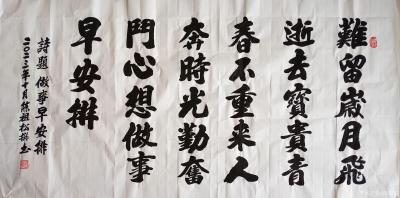 難留歲月飛
逝去寶貴青
春不重来人
奔時光勤奮
鬥心想做事
早安排
詩題做事早安排
二〇二三年十月